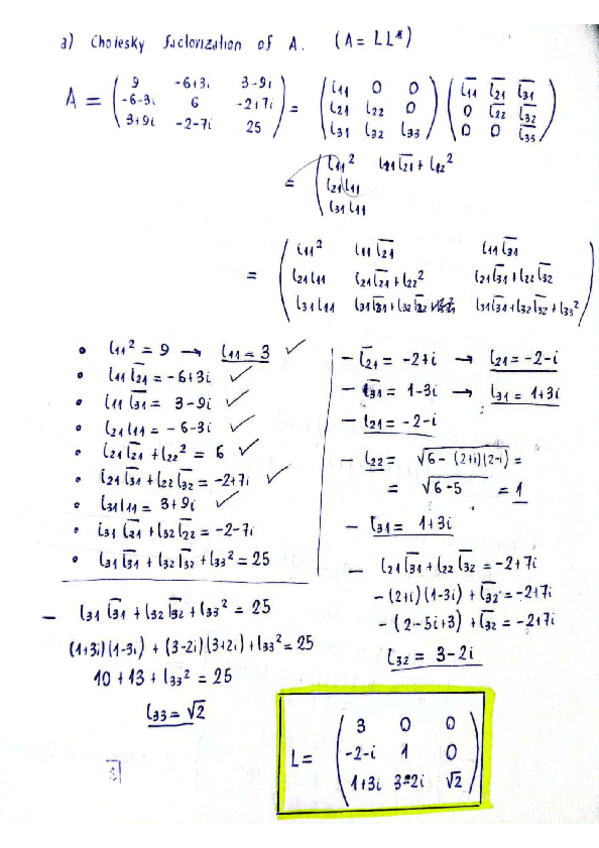 a) Cholesky factorization of A. (A = LL*)
A = ( 9 -6+3i 3-9i ; -6-3i 6 -2+7i ; 3+9i -2-7i 25 ) = ( l11 0 0 ; l21 l22 0 ; l31 l32 l33 ) ( l̅11 l̅21 l̅31 ; 0 l̅22 l̅32 ; 0 0 l̅33 )
= ( l11² l21 l̅21 + l12² ; l21 l11 ; l31 l11
= ( l11² l11 l̅21 l11 l̅31 ; l21 l11 l21 l̅21 + l22² l21 l̅31 + l22 l̅32 ; l31 l11 l31 l̅21 + l32 l̅22 l31 l̅31 + l32 l̅32 + l33² )
• l11² = 9 → l11 = 3 ✓
• l11 l̅21 = -6+3i ✓
• l11 l̅31 = 3-9i ✓
• l21 l11 = -6-3i ✓
• l21 l̅21 + l22² = 6 ✓
• l21 l̅31 + l22 l̅32 = -2+7i ✓
• l31 l11 = 3+9i ✓
• l31 l̅21 + l32 l̅22 = -2-7i
• l31 l̅31 + l32 l̅32 + l33² = 25
- l31 l̅31 + l32 l̅32 + l33² = 25
(1+3i)(1-3i) + (3-2i)(3+2i) + l33² = 25
10 + 13 + l33² = 25
l33 = √2
- l̅21 = -2+i → l21 = -2-i
- l̅31 = 1-3i → l31 = 1+3i
- l21 = -2-i
- l22 = √6-(2+i)(2-i) =
= √6-5 = 1
- l31 = 1+3i
- l21 l̅31 + l22 l̅32 = -2+7i
-(2+i)(1-3i) + l̅32 = -2+7i
-(2-5i+3) + l̅32 = -2+7i
l32 = 3-2i
L = ( 3 0 0 ; -2-i 1 0 ; 1+3i 3-2i √2 )